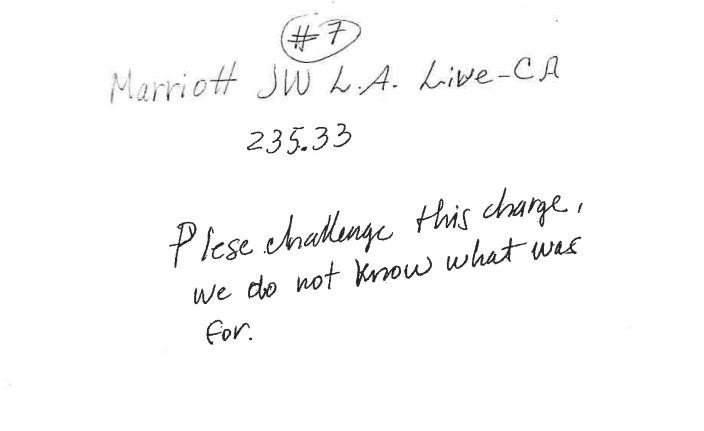 #7
Marriott JW L.A. Live-CA
235.33
Plese challenge this charge,
we do not know what was
for.